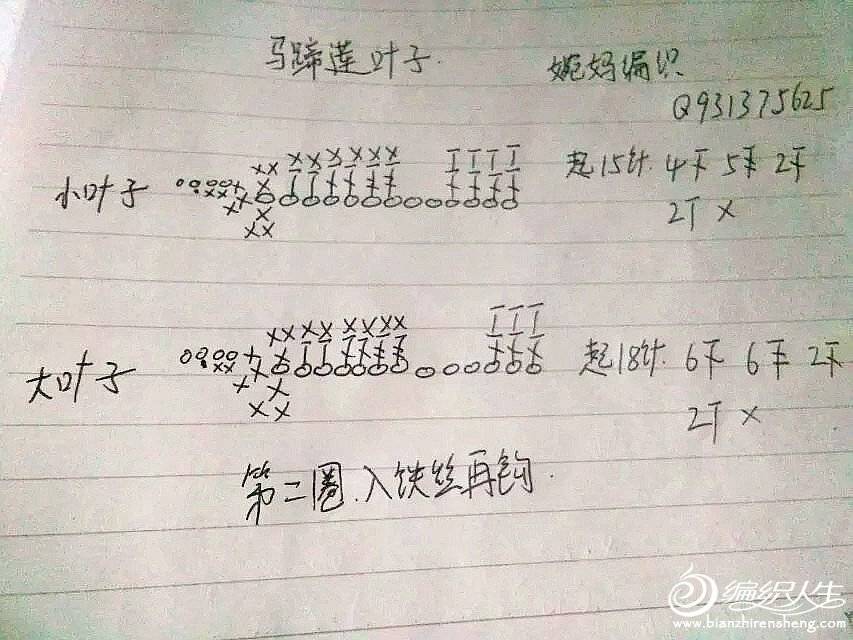 马蹄莲叶子
婉妈编织
Q931375625
小叶子
起15针. 4下 5下 2下
2T ×
大叶子
起18针. 6下 6下 2下
2T ×
第二圈.入铁丝再钩.
编织人生
www.bianzhirensheng.com